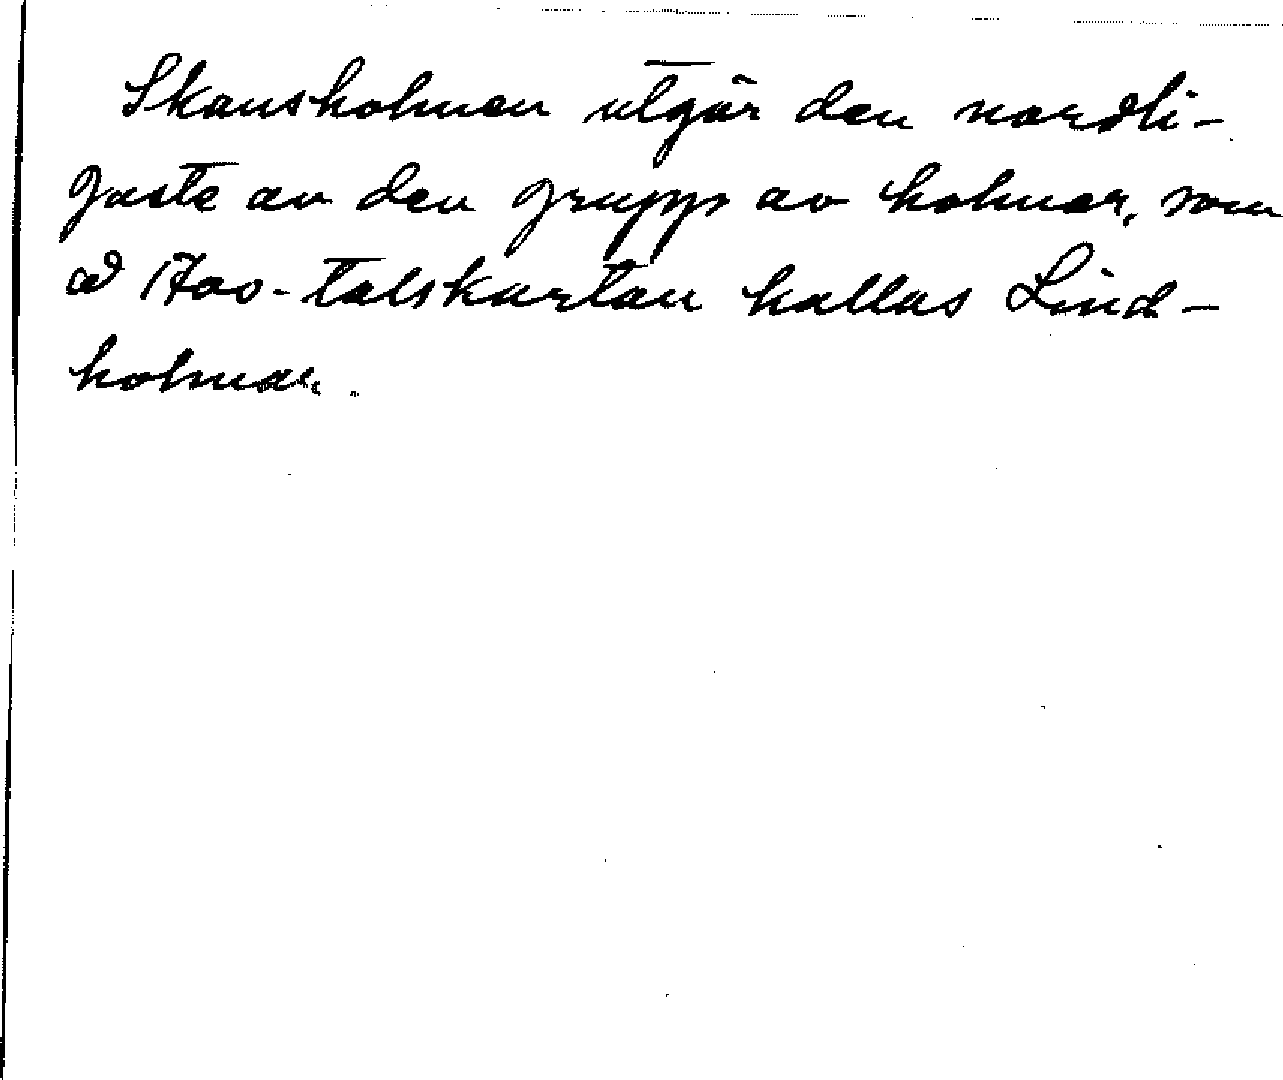 Skansholmen utgör den nordli-
gaste av den grupp av holmar, som
å 1700-talskartan kallas Lind-
holmar.